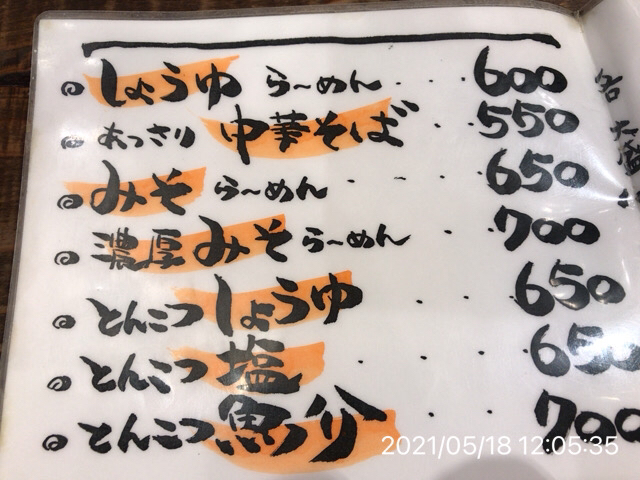 しょうゆ らーめん 600
あっさり 中華そば 550
みそ らーめん 650
濃厚みそらーめん 700
とんこつしょうゆ 650
とんこつ塩 650
とんこつ魚介 700
各大盛
2021/05/18 12:05:35